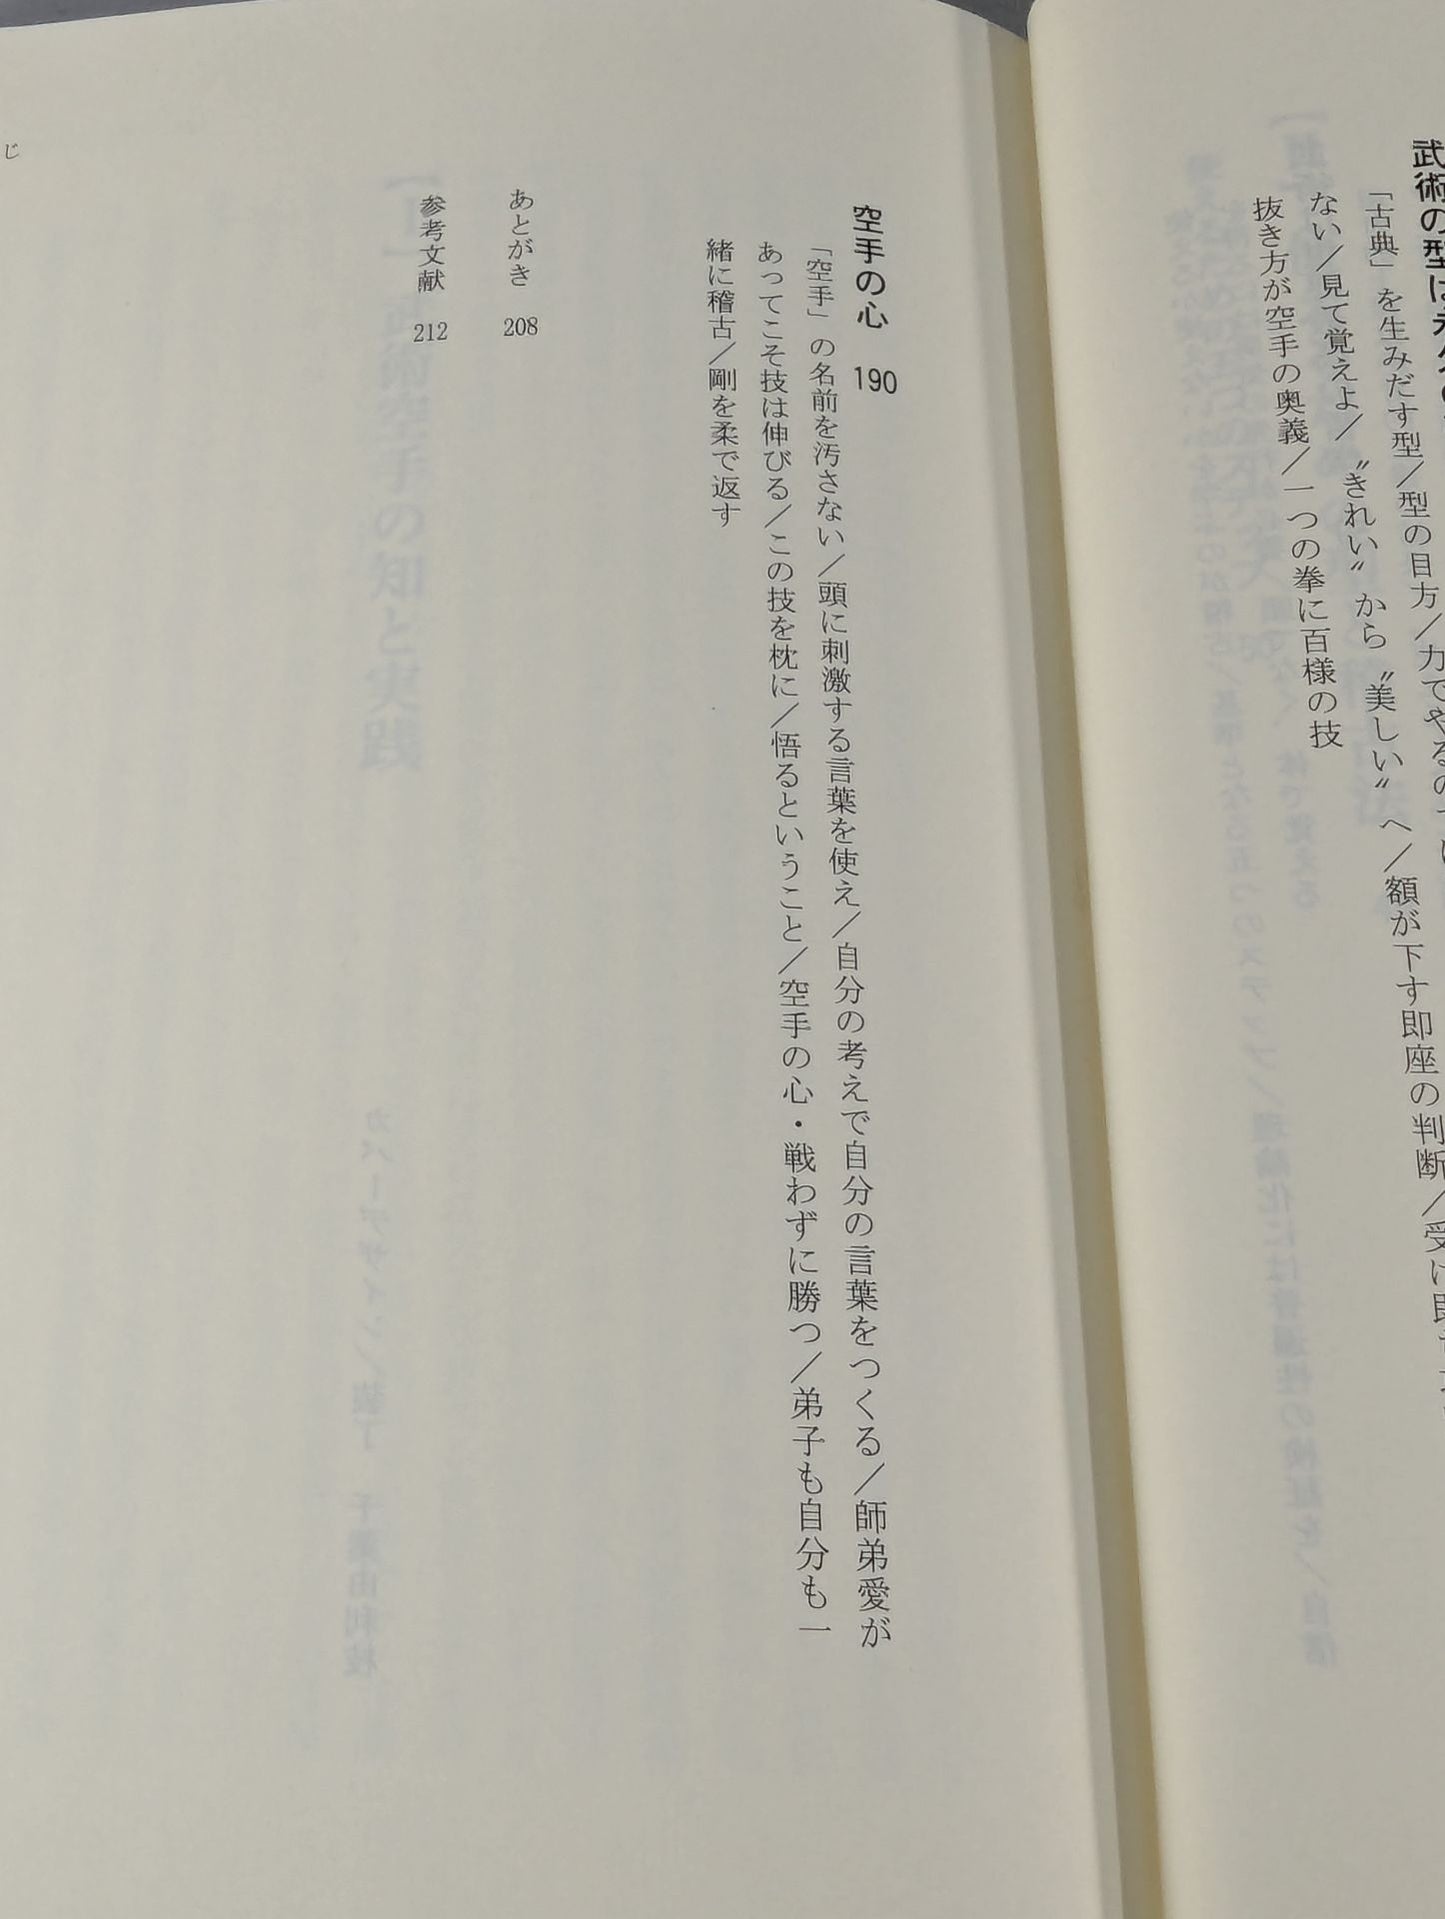 武術の型は
「古典」を生みだす型／型の目方／力でやるの
ない／見て覚えよ／〝きれい〟から〝美しい〟へ／額が下す即座の判断／受け
抜き方が空手の奥義／一つの拳に百様の技
空手の心 190
「空手」の名前を汚さない／頭に刺激する言葉を使え／自分の考えで自分の言葉をつくる／師弟愛が
あってこそ技は伸びる／この技を枕に／悟るということ／空手の心・戦わずに勝つ／弟子も自分も一
緒に稽古／剛を柔で返す
あとがき 208
参考文献 212
じ